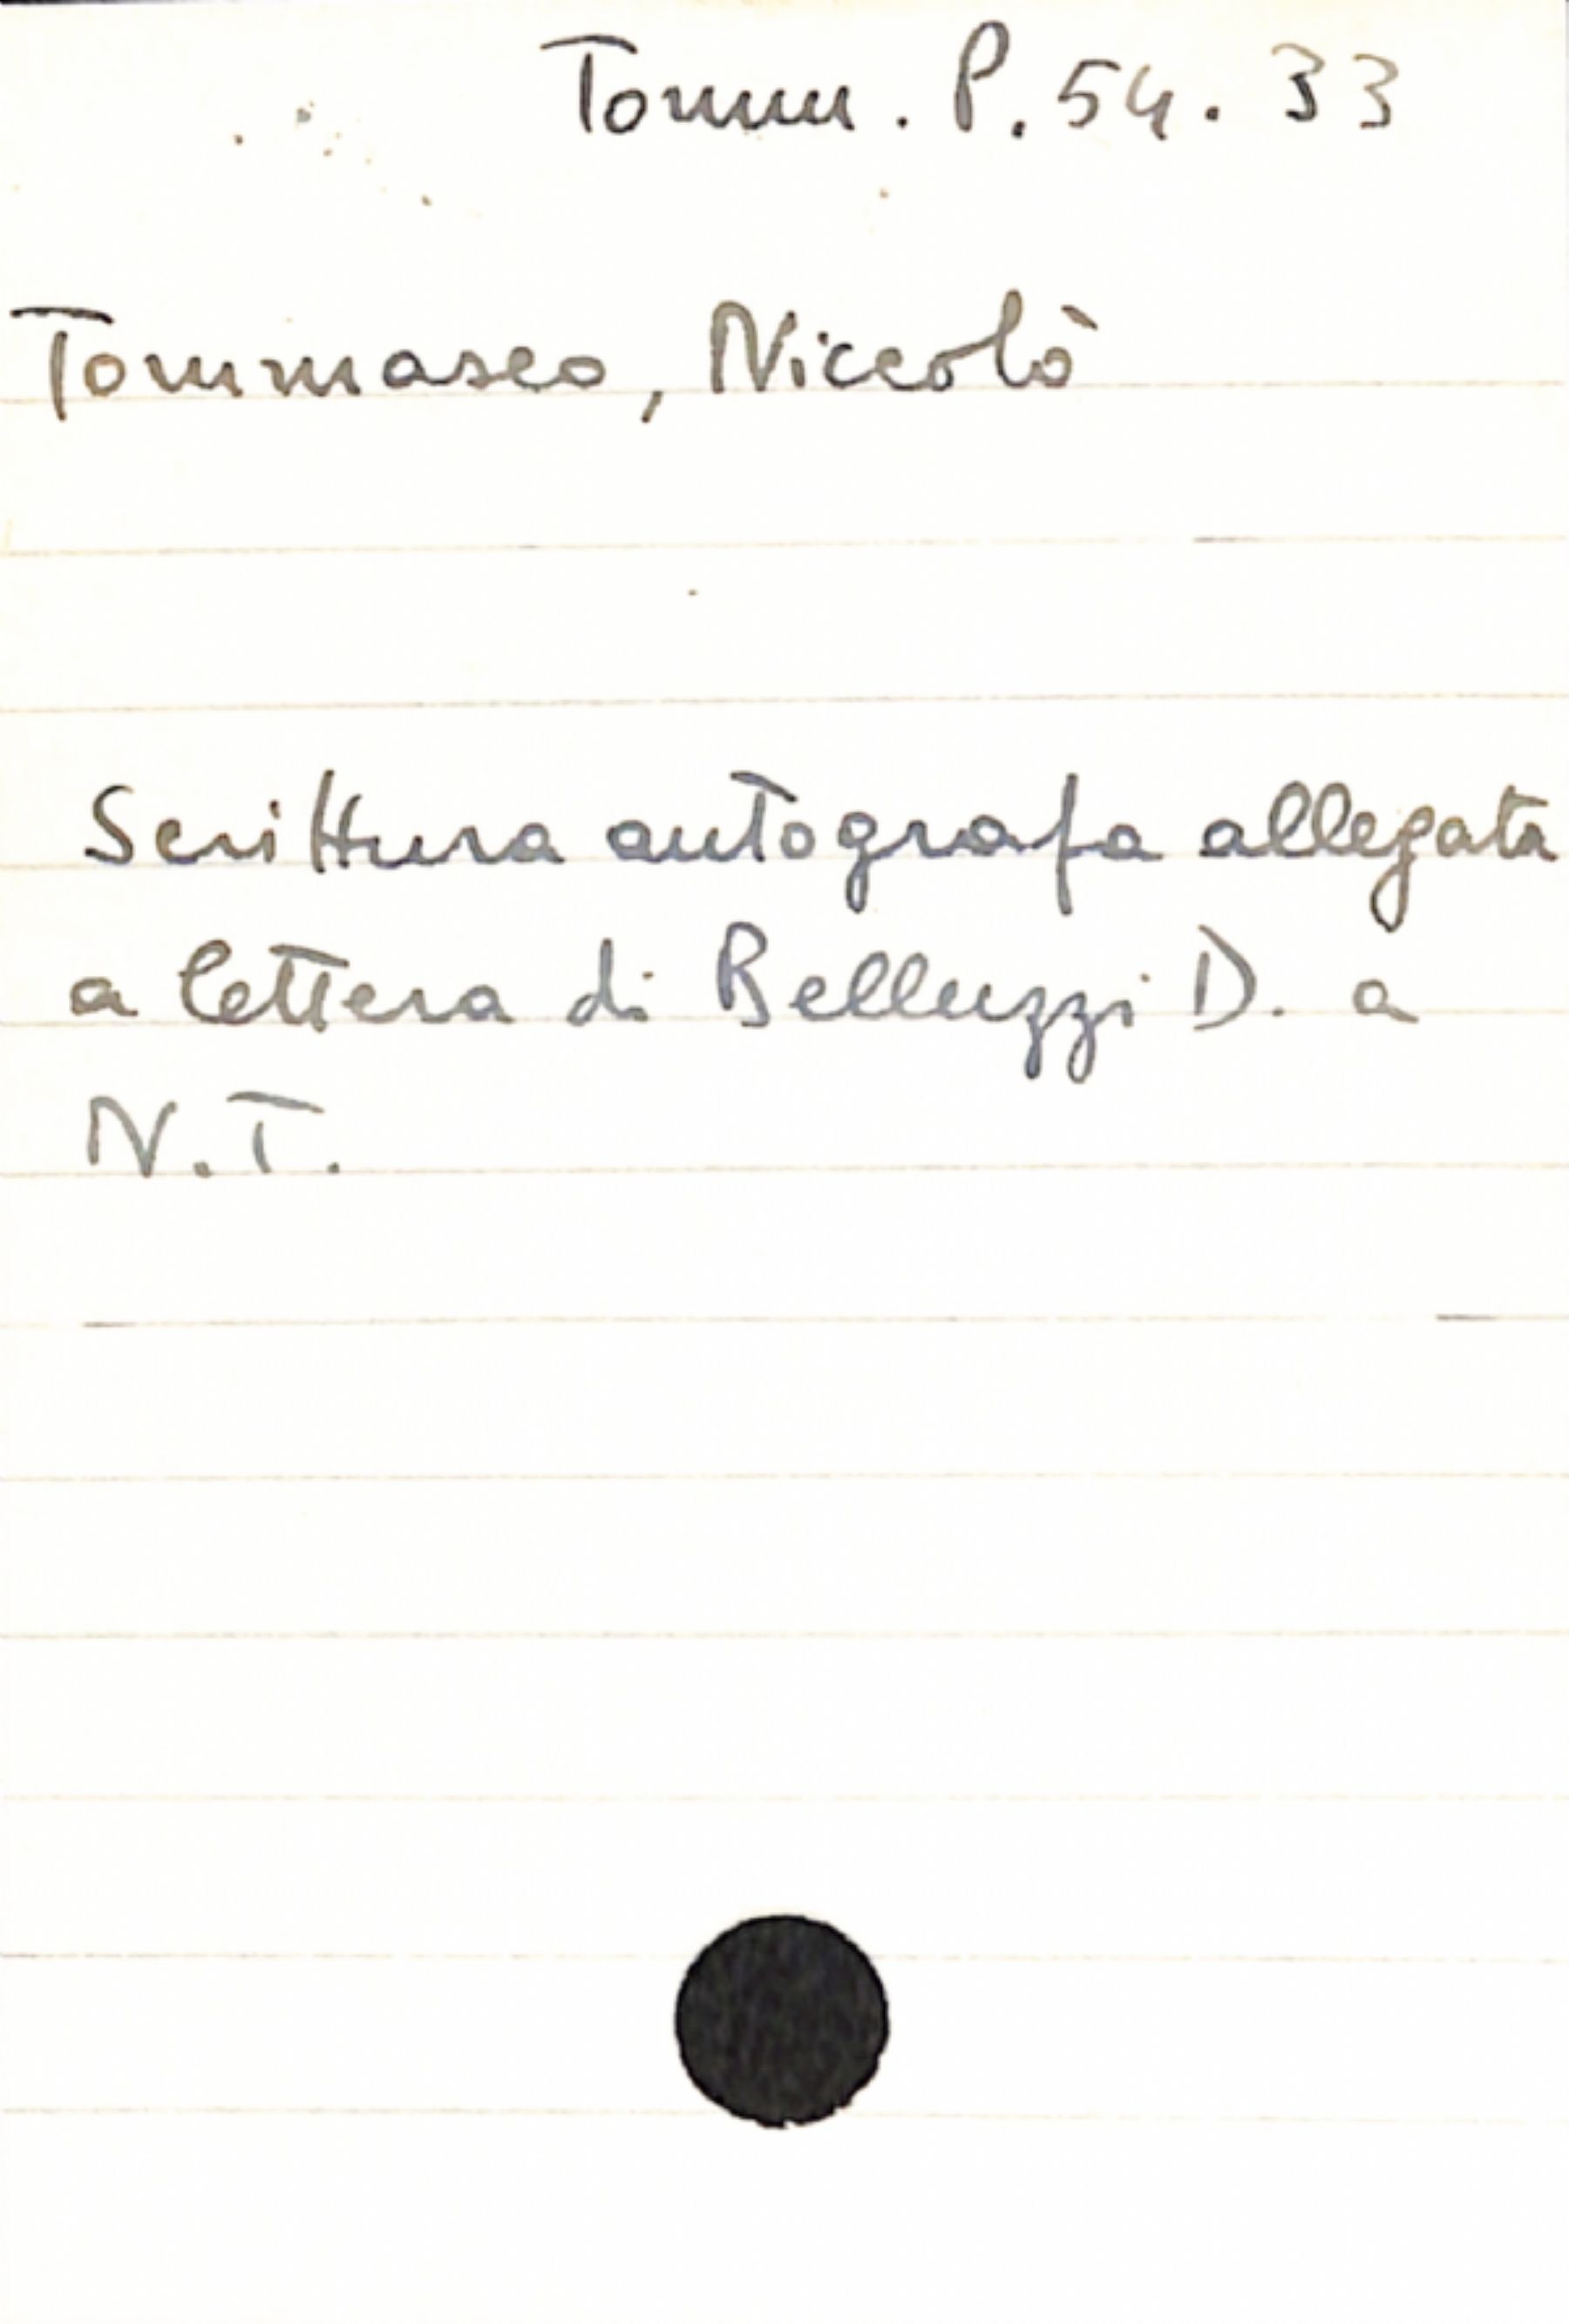 Tomm. P. 54. 33
Tommaseo, Niccolò
Scrittura autografa allegata
a lettera di Belluzzi D. a
N. T.